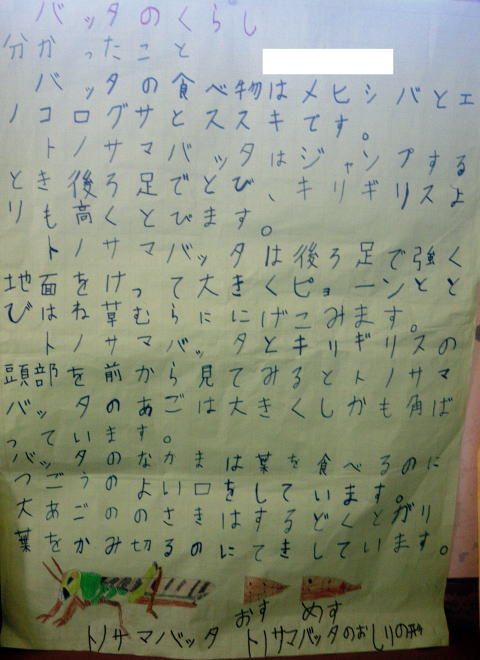 バッタのくらし
分かったこと
バッタの食べ物はメヒシバとエ
ノコログサとススキです。
トノサマバッタはジャンプする
とき後ろ足でとび、キリギリスよ
りも高くとびます。
トノサマバッタは後ろ足で強く
地面をけって大きくピョーンとと
びはね草むらににげこみます。
トノサマバッタとキリギリスの
頭部を前から見てみるとトノサマ
バッタのあごは大きくしかも角ば
っています。
バッタのなかまは葉を食べるのに
つごうのよい口をしています。
大あごののさきはするどくとがり
葉をかみ切るのにてきしています。
おす めす
トノサマバッタ トノサマバッタのおしりの形